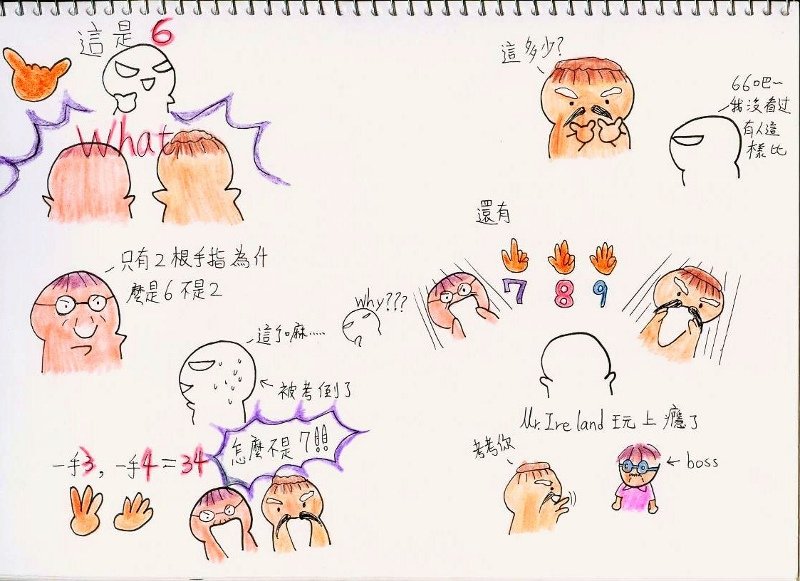 這是6
What
只有2根手指為什
麼是6不是2
why???
這 麻.....
被考倒了
一手3, 一手4=34
怎麼不是7!!
這多少?
66吧~
我沒看过
有人這
樣比
還有
7 8 9
Mr. Ireland 玩上癮了
考考你
boss